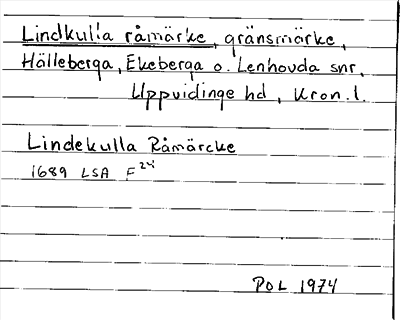 Lindkulla råmärke, gränsmärke,
Hälleberga, Ekeberga o. Lenhovda snr,
Uppvidinge hd, Kron. l.
Lindekulla Råmärcke
1689 LSA F 24
POL 1974